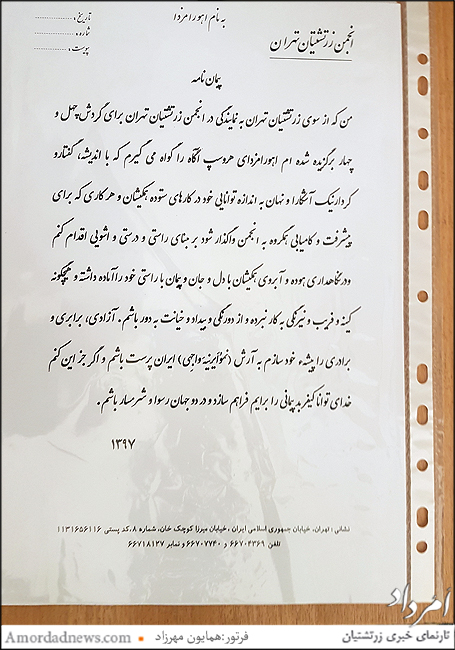 به نام اهورامزدا
انجمن زرتشتیان تهران
تاریخ :
شماره :
پیوست :
پیمان نامه
من که از سوی زرتشتیان تهران به نمایندگی در انجمن زرتشتیان تهران برای گردش چهل و
چهار برگزیده شده ام اهورامزدای هروسپ آگاه را گواه می گیرم که با اندیشه، گفتار و
کردار نیک آشکارا و نهان به اندازه توانایی خود در کارهای ستوده همکیشان و هر کاری که برای
پیشرفت و کامیابی همگروه به انجمن واگذار شود بر مبنای راستی و درستی و اشویی اقدام کنم
و در نگاهداری هوده و آبروی همکیشان با دل و جان و پیمان با راستی خود را آماده داشته و هیچگونه
کینه و فریب و نیرنگی به کار نبرده و از دورنگی و بیداد و خیانت به دور باشم . آزادی، برابری و
برادری را پیشه خود سازم به آرش (نموایرینه واجی) ایران پرست باشم و اگر جز این کنم
خدای توانا کیفر بد پیمانی را برایم فراهم سازد و در دو جهان رسوا و شرمسار باشم .
۱۳۹۷
نشانی : تهران، خیابان جمهوری اسلامی ایران ، خیابان میرزا کوچک خان، شماره ۸، کد پستی ۱۱۳۱۶۵۶۱۱۶
تلفن ۶۶۷۰۴۳۶۹ و ۶۶۷۰۷۷۴۰ و نمابر ۶۶۷۱۸۱۳۷
امرداد
تارنمای خبری زرتشتیان
فرتور:همایون مهرزاد
Amordadnews.com